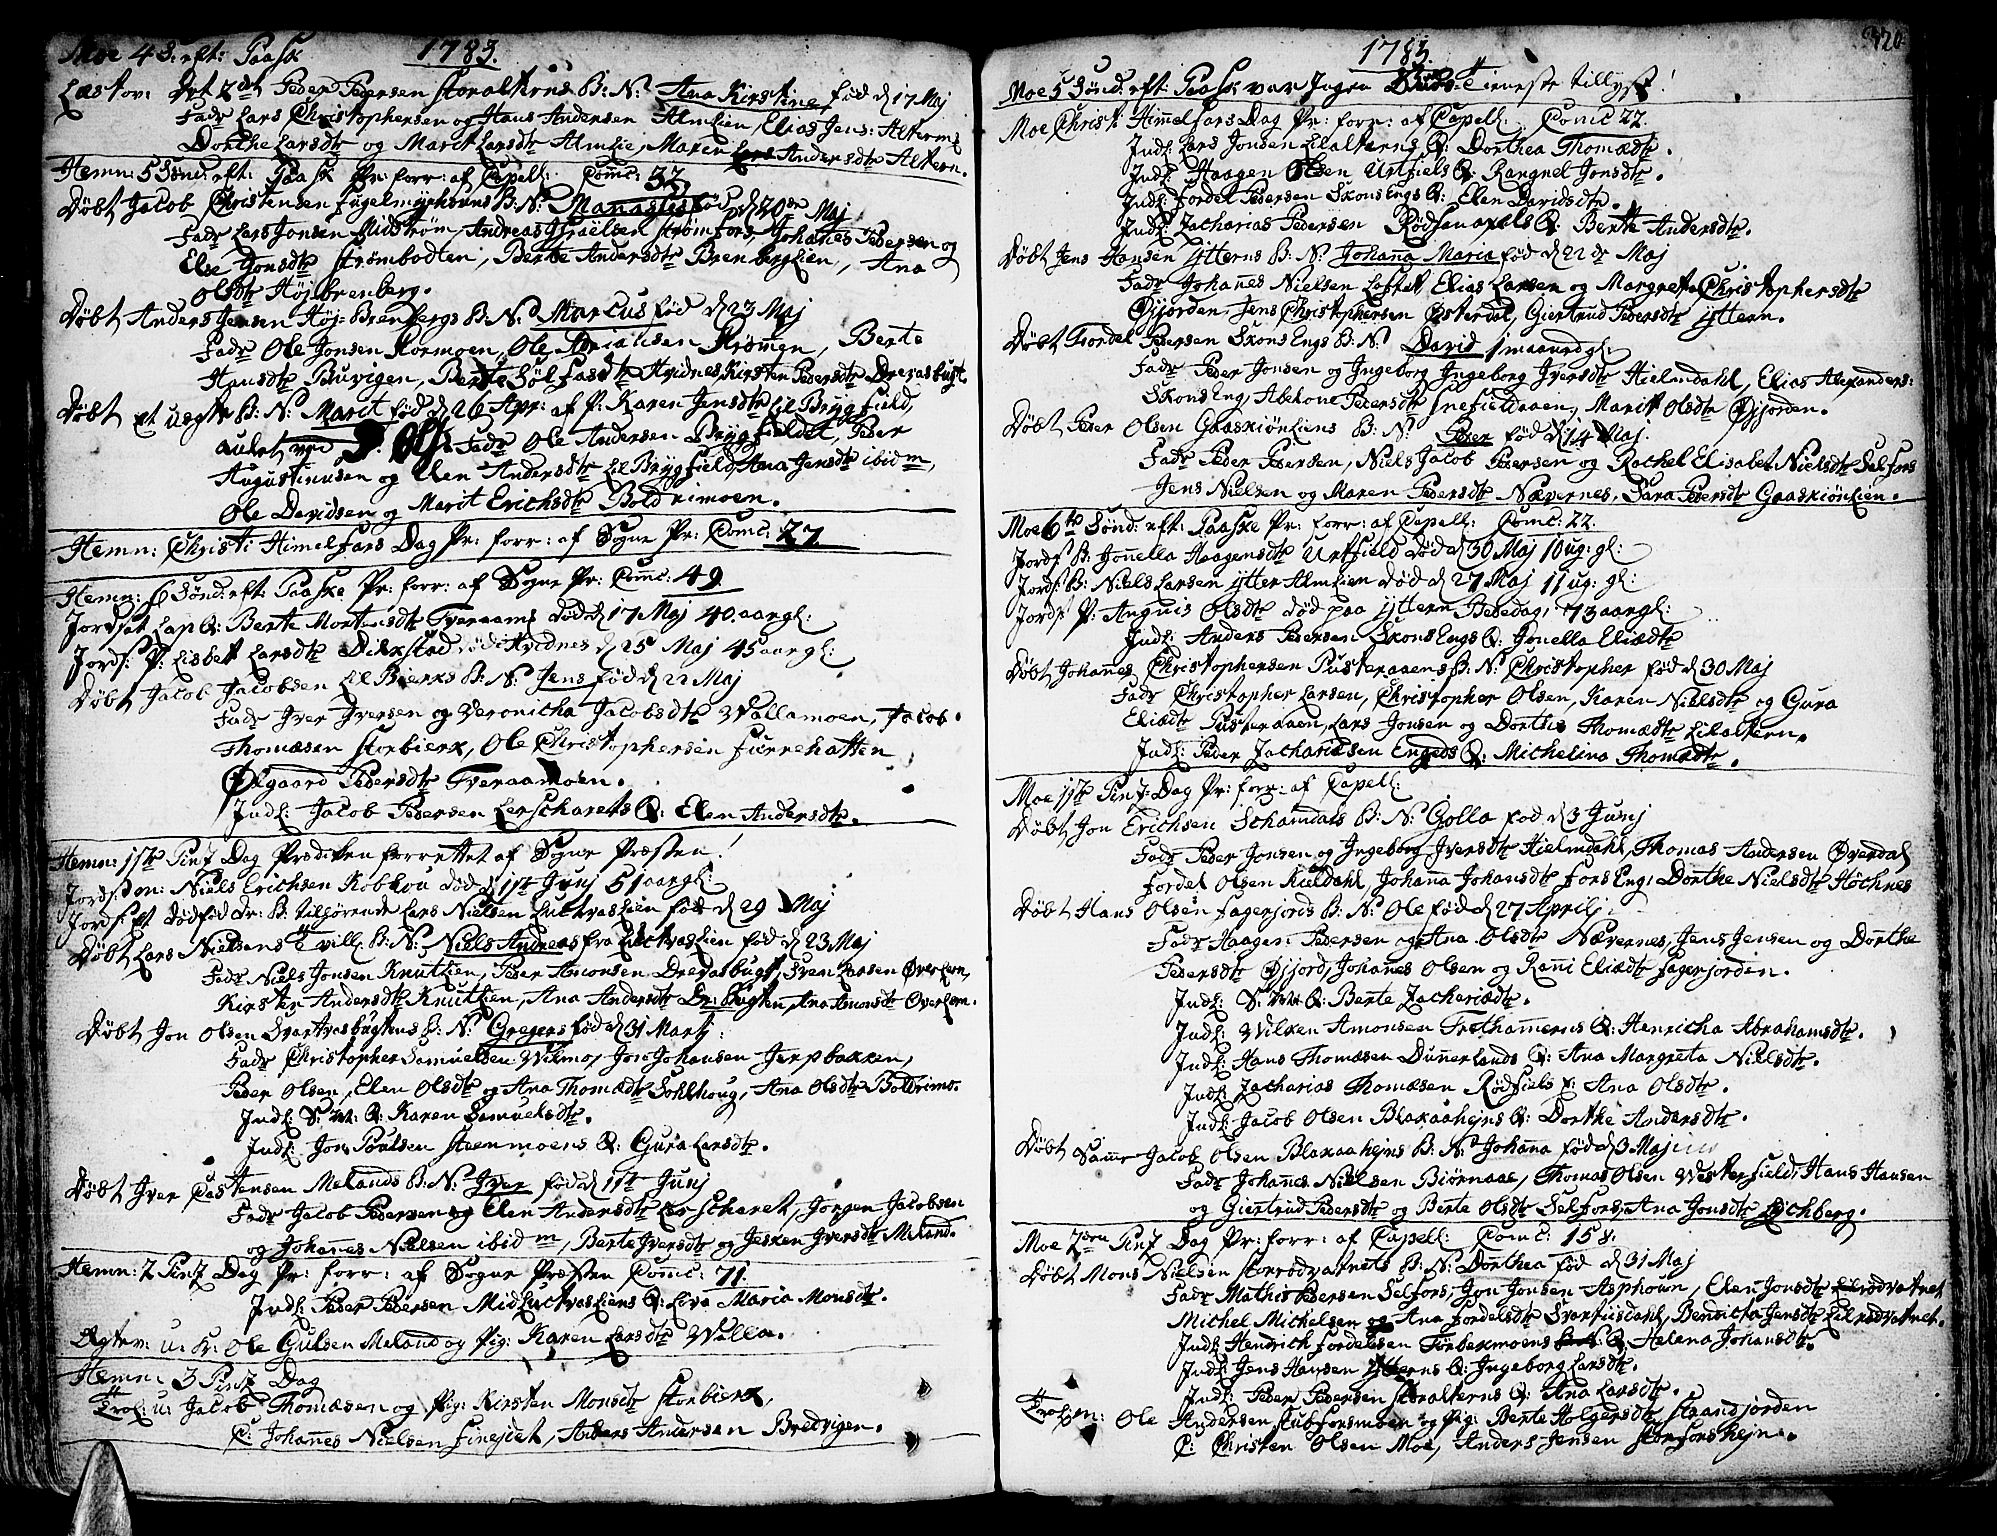 Moe 4 S: eft: Paask
1783.
Løst ov: Det 2det Peder Pedersen Storalterns B: N: Ana Kirstine fød d 17 Maj
Fadr Lars Christophersen og Hans Andersen Almlien, Elias Jens: Alterms
Dorthe Larsdtr og Marit Larsdtr Almlie, Maren Andersdtr Altern.
Hemn: 5 Sønd: eft: Paask Pr: forr: af Capell: Comc: 32.
Døbt Jacob Christensen Fugelmyrhovns B: N: Manasses fød d 20de Maj
Fadr Lars Jonsen Midstrøm, Andreas Israelsen Strømfors, Johanes Pedersen og
Else Jonsdtr Strømbodten, Berte Andersdtr Brenberglien, Ana
Olsdtr Højbrenberg.
Døbt Anders Jensen Høj-Brenbergs B: N: Marcus fød d 23 Maj
Fadr Ole Jonsen Kormoen, Ole Adriansen Krømen, Berte
Hansdtr Buvigen, Berte Sølfasdtr Hvidnes, Kirsten Pedersdtr Drevasbugt.
Døbt Et uægte B: N: Marit fød d 26 Apr: af P: Karen Jensdtr Lil Brygfield,
Fadr Ole Andersen Brygfieldet, Peder
Augustinusen og Elen Andersdtr Lil Brygfield, Ana Jensdtr ibidm,
Ole Davidsen og Marit Erichsdtr Boldrimoen.
Hemn: Christi Himelfars Dag Pr: forr: af Sogne Pr: Comc: 27
Hemn: 6 Sønd: eft: Paaske Pr: forr: af Sogne Pr: Comc: 49.
Jordsat Lap Q: Berte Mortensdtr Tveraaens død d 17 Maj 40. aar gl:
Jords: P: Lisbet Larsdtr Dilkestad død i Hvidnes d 25 Maj 45 aar gl:
Døbt Jacob Jacobsen Lil Bierks B: N: Jens fød d 22 Maj
Fadr Iver Iversen og Veronicha Jacobsdtr Wallamoen, Jacob
Thomæsen Storbierk, Ole Christophersen Furrehatten
Ølgaard Pedersdtr Tveraamoen.
Indl: Jacob Pedersen Lerscharets Q: Elen Andersdtr.
Hemn: 1ste Pinz Dag Prædiken forrettet af Sogne Præsten!
Jords: m: Niels Erichsen Kobhou død d 1ste Junj 51 aar gl:
Jords: Et dødfød Dr: B: tilhørende Lars Nielsen Luctvaslien fød d 29 Maj
Døbt Lars Nielsens Tvill: B: N: Niels Andreas fra Luctvaslien fød d 23 Maj
Fadr Niels Jonsen Knutlien, Peder Amonsen Drevasbugt, Sven Larsen Øverlern,
Kirsten Andersdtr Knutlien, Ana Andersdtr Dr: Bugten, Ana Amonsdtr Øverlern.
Døbt Jon Olsen Svartvasbugtens B: N: Gregers fød d 31 Martj
Fadr Christopher Samuelsen Wilmo, Jon Johansen Jerpbakken,
Peder Olsen, Elen Olsdtr og Ana Thomædtr Sohlhoug, Ana Olsdtr Boldrimo.
Indl: S: m: Q: Karen Samuelsdtr.
Indl: Jon Poulsen Steenmoens Q: Gura Larsdtr.
Døbt Iver Castensen Melands B: N: Iver fød d 1ste Junj
Fadr Jacob Pedersen og Elen Andersdtr Lerscharet, Jørgen Jacobsen
og Johanes Nielsen ibidm, Berte Iversdtr og Jesken Iversdtr Meland.
Hemn: 2 Pinz Dag Pr: forr: af Sogne Præsten Comc: 71.
Indl: Peder Pedersen Midluctvasliens Q: Live Maria Monsdtr.
Ægtev: u: K: Ole Gulsen Meland og Pig: Karen Larsdtr Walla.
Hemn: 3 Pinz Dag
Trol: u: Jacob Thomæsen og Pig: Kirsten Monsdtr Storbierk,
C: Johanes Nielsen Finesiet, Anders Andersen Bredvigen.
1783.
420
Moe 5 Sønd: eft: Paask var Ingen Tieneste tillyst!
Moe Christi Himelfars Dag Pr: forr: af Capell: Comc 22.
Indl: Lars Jonsen Lilalterns Q: Dorthea Thomædtr.
Indl: Haagen Olsen Urtfiels Q: Rangnel Jonsdtr.
Indl: Fordel Pedersen Skons Engs Q: Elen Davidsdtr.
Indl: Zacharias Pedersen Rødsanaxels Q: Berte Andersdtr.
Døbt Jens Hansen Ytterns B: N: Johana Maria fød d 22de Maj
Fadr Johanes Nielsen Loftet, Elias Larsen og Margreta Christophersdtr
Øijorden, Jens Christophersen Østerdal, Giertrud Pedersdtr Yttern.
Døbt Fordel Pedersen Skons Engs B: N: David 1 maaned gl:
Fadr Peder Jonsen og Ingeborg Ingeborg Iversdtr Hielmdahl, Elias Alexanders:
Skons Eng, Abelone Pedersdtr Snefieldaaen, Marit Olsdtr Øijorden.
Døbt Peder Olsen Gaaskiønliens B: N: Peder fød d 14 Maj.
Fadr Peder Pedersen, Niels Jacob Pedersen og Rachel Elisabet Nielsdtr Selfors
Jens Nielsen og Maren Pedersdtr Nævernes, Sara Pedersdtr Gaaskiønlien.
Moe 6te Sønd: eft: Paaske Pr: forr: af Capell: Comc: 22.
Jords: B: Jonella Haagensdtr Urtfield død d 30 Maj 10 ug: gl:
Jords: B: Niels Larsen Ytter Almlien død d 27 Maj 11 ug: gl:
Jords: P: Angnis Olsdtr død paa Yttern Bededag, 73 aar gl:
Indl: Anders Pedersen Skons Engs Q: Jonella Eliædtr
Døbt Johanes Christophersen Pusteraaens B: N: Christopher fød d 30 Maj
Fadr Christopher Larsen, Christopher Olsen, Karen Nielsdtr og Gura
Eliædtr Pusteraaen, Lars Jonsen og Dorthea Thomædtr Lilaltern.
Indl: Peder Zachariæsen Engeds Q: Michelina Thomædtr.
Moe 1ste Pinz: Dag Pr: forr: af Capell:
Døbt Jon Erichsen Schamdals B: N: Golla fød d 3 Junj
Fadr Peder Jonsen og Ingeborg Iversdtr Hielmdahl, Thomas Andersen Øverdal
Fordel Olsen Kieldahl, Johana Johansdtr Fors Eng, Dorthe Nielsdtr Høchnes
Døbt Hans Olsen Fagerjords B: N: Ole fød d 27 Aprilj
Fadr Haagen Pedersen og Ana Olsdtr Nævernes, Jens Jensen og Dorthe
Pedersdtr Øijord, Johanes Olsen og Rani Eliædtr Fagerjorden.
Indl: S: m: Q: Berte Zachariædtr.
Indl: Wilken Amonsen Trethamerns Q: Henricha Abrahamsdtr.
Indl: Hans Thomæsen Dunerlands Q: Ana Margreta Nielsdtr.
Indl: Zacharias Thomæsen Rødfiels Q: Ana Olsdtr.
Indl: Jacob Olsen Blakaahejns Q: Dorthe Andersdtr.
Døbt Samme Jacob Olsen Blakaahejns B: N: Johana fød d 3 Maj
Fadr Johanes Nielsen Biørnaae, Thomas Olsen Westerfield, Hans Hansen
og Giertrud Pedersdtr og Berte Olsdtr Selfors, Ana Jonsdtr Lychberg.
Moe 2den Pinz Dag Pr: forr: af Capell: Comc: 158.
Døbt Mons Nielsen Storrødvatnets B: N: Dorthea fød d 31 Maj
Fadr Mathis Pedersen Selfors, Jon Jonsen Asphoun, Elen Jonsdtr Lilrødvatnet
Michel Michelsen og Ana Fordelsdtr Svartiisdahl, Bendicta Jensdtr Lilrødvatnet.
Indl: Hendrich Fordelsen Tørbekmoens Q: Helena Johansdtr.
Indl: Jens Hansen Ytterns Q: Ingeborg Larsdtr.
Indl: Peder Pedersen Storalterns Q: Ana Larsdtr.
Trol: m: Ole Andersen Stubforsmoen og Pig: Berte Holgersdtr Straandjorden
C: Christen Olsen Moe, Anders Jensen Storforshejn.